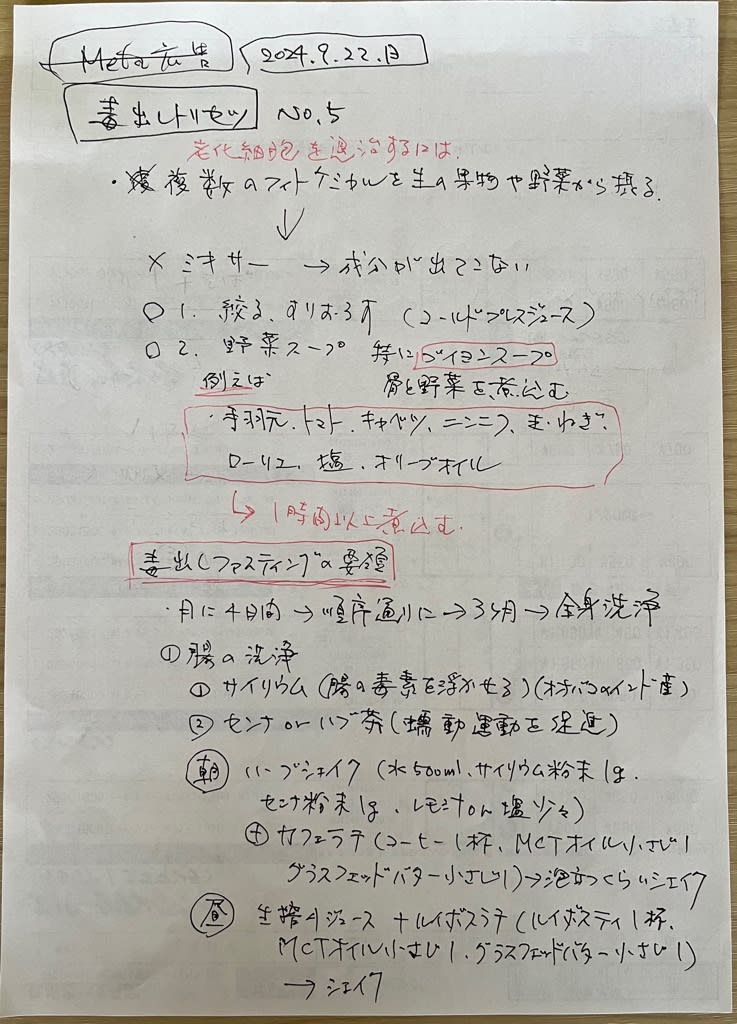 Meta広告 2024.9.22.日
毒出しトリセツ NO.5
老化細胞を退治するには.
・複数のフィトケミカルを生の果物や野菜から摂る.
↓
× ミキサー → 成分が出てこない
○ 1. 絞る、すりおろす (コールドプレスジュース)
○ 2. 野菜スープ 特にブイヨンスープ
例えば 骨と野菜を煮込む
・手羽元、トマト、キャベツ、ニンニク、玉ねぎ、
ローリエ、塩、オリーブオイル
↳ 1時間以上煮込む.
毒出しファスティングの要領
・月に4日間 → 順序通りに → 3ヶ月 → 全身洗浄
① 腸の洗浄
① サイリウム (腸の毒素を浮かせる) (オオバコのインド産)
② センナ or ハブ茶 (蠕動運動を促進)
朝 ハーブシェイク (水500ml、サイリウム粉末1g.
センナ粉末1g、レモン汁 塩少々)
⊕ カフェラテ (コーヒー1杯、MCTオイル小さじ1
グラスフェッドバター小さじ1) → 泡立つくらいシェイク
昼 生搾りジュース + ルイボスラテ (ルイボスティ1杯、
MCTオイル小さじ1、グラスフェッドバター小さじ1)
→ シェイク